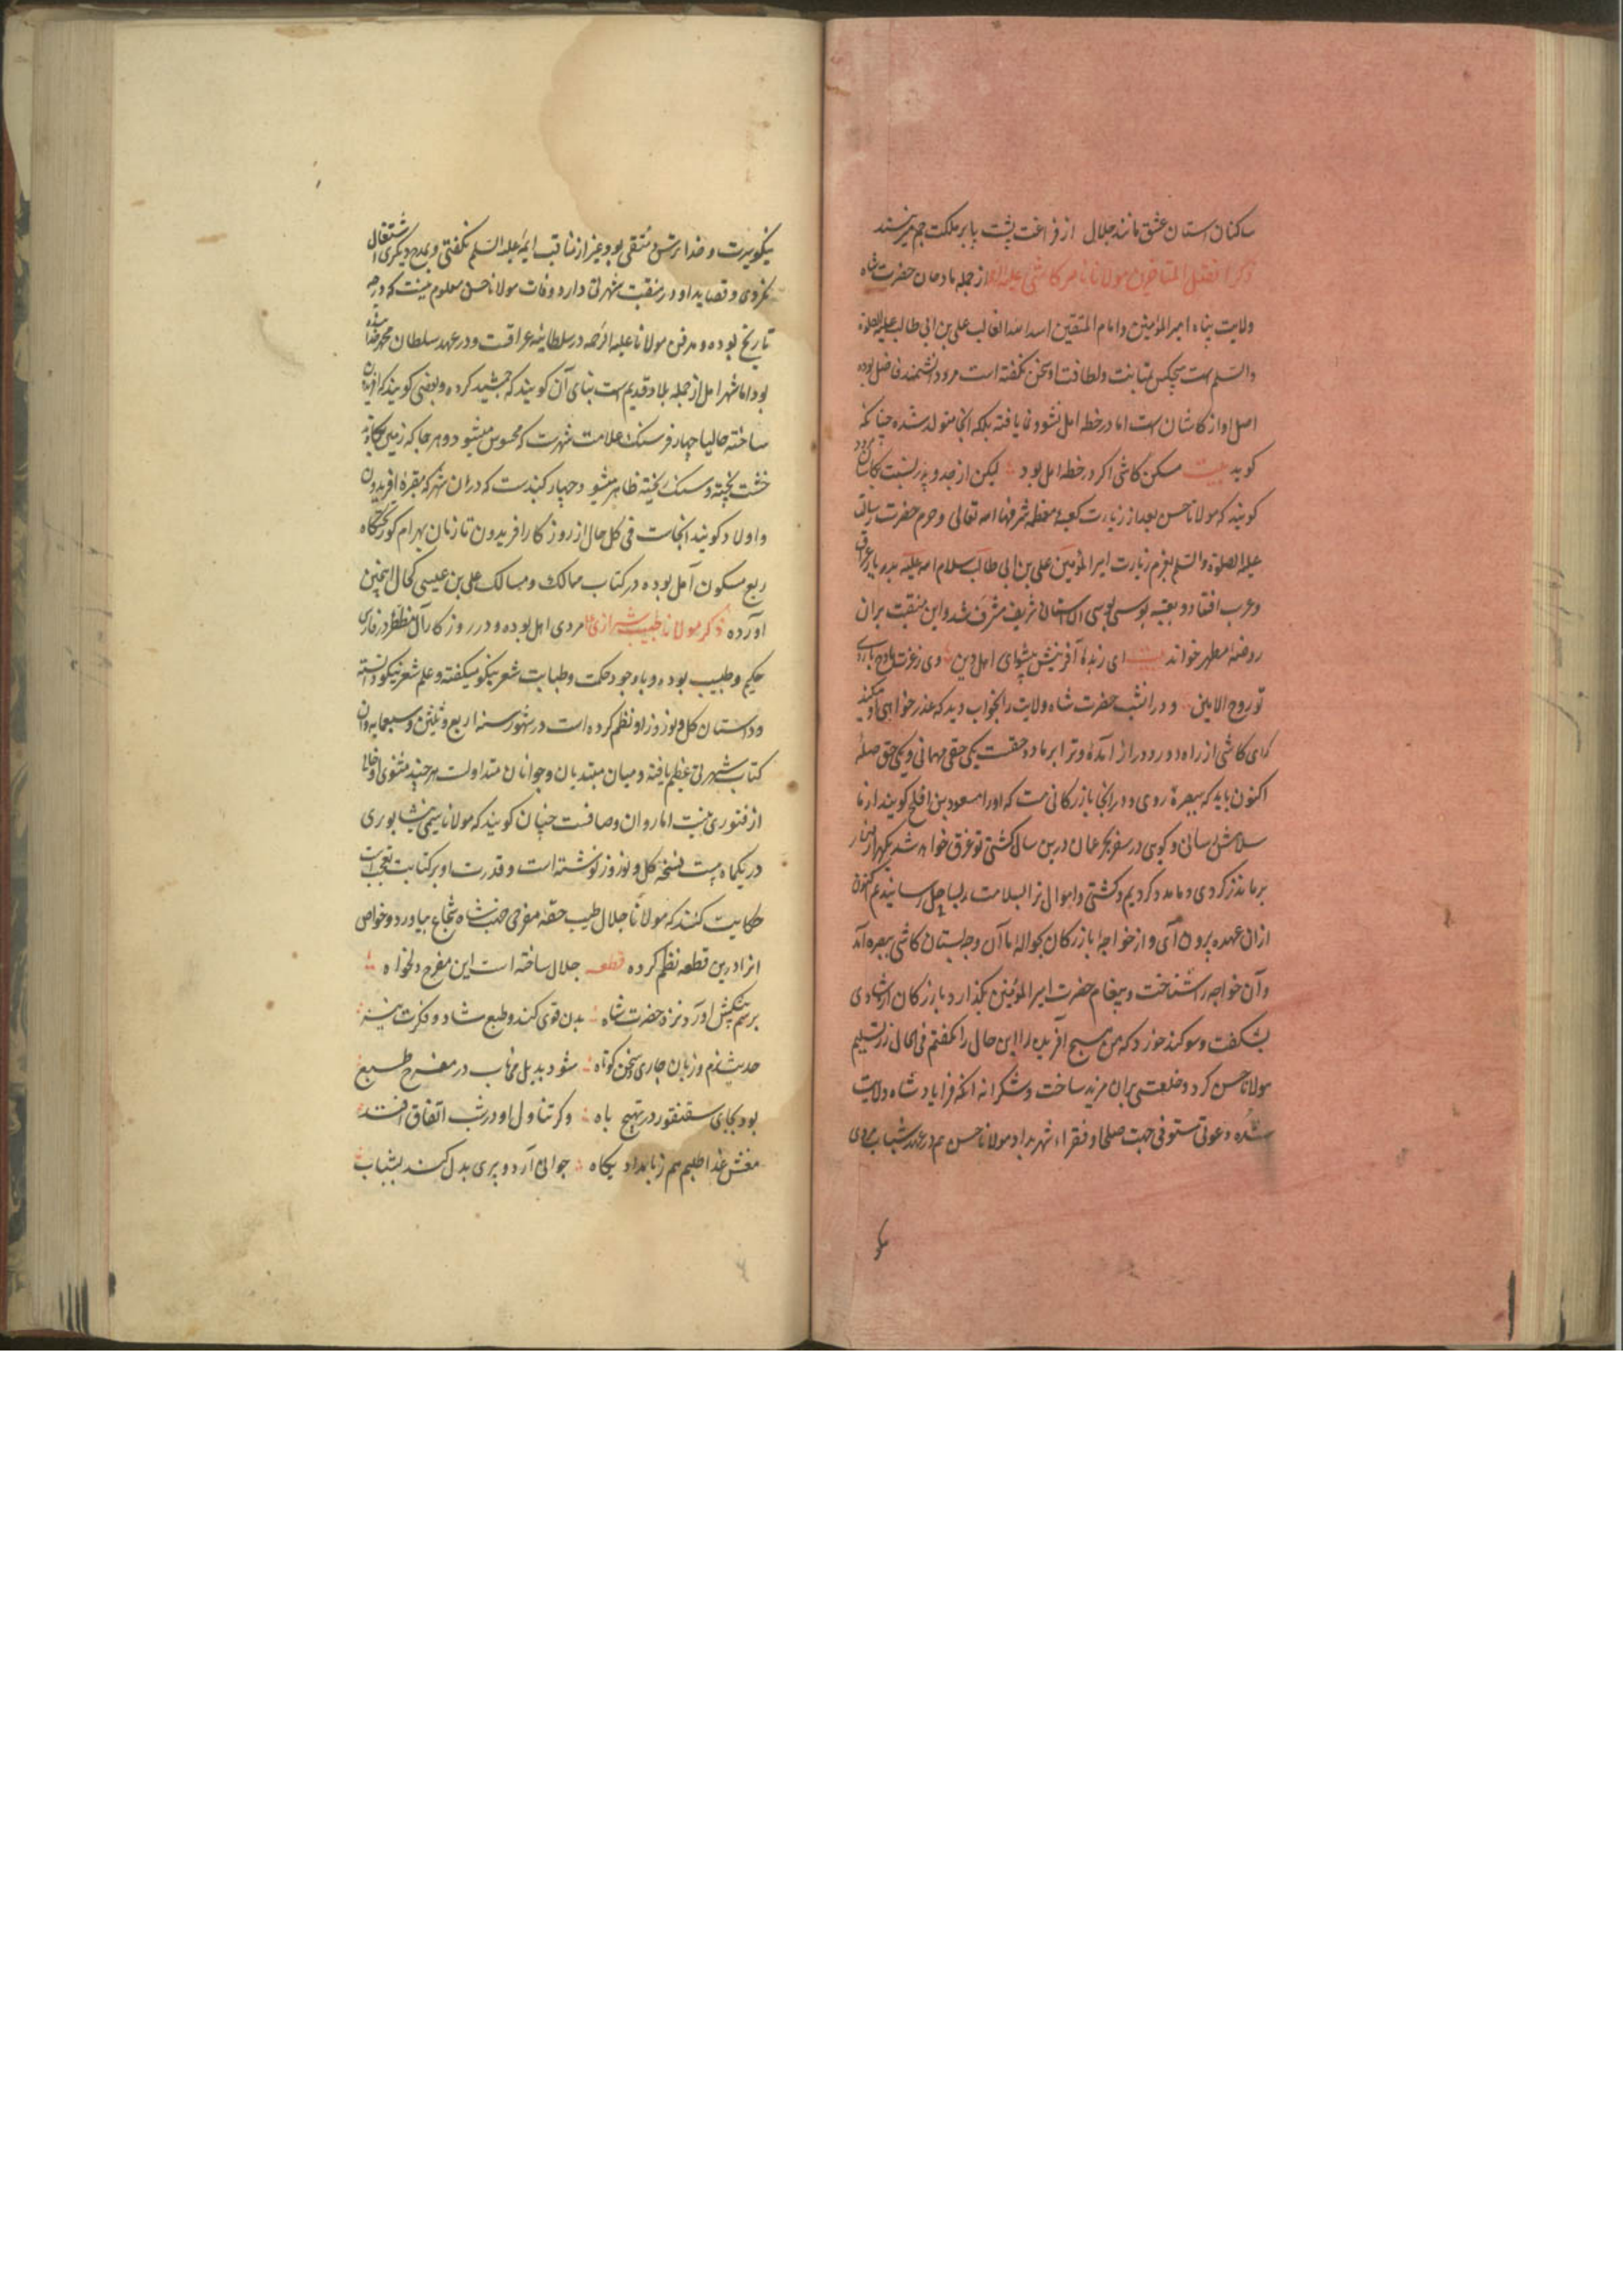 ساکنان آستان عشق مانند جلال از فراغت پشت پا بر ملکت جم میزنند
ذکر افضل المتاخرین مولانا کاشی علیه از جمله مادحان حضرت شاه
ولایت پناه امیر المؤمنین و امام المتقین اسد الله الغالب علی بن ابی طالب علیه الصلوة
والسلم است هیچکس بمتانت و لطافت او سخن نگفته است مرد دانشمند فاضل بوده
اصل او از کاشان است اما در خطه امل نشو و نما یافته بلکه انجا متولد شده چنانکه
کوید بیت مسکن کاشی اکر در خطه امل بود لیکن از جد و پدر نسبت بکاشان میرود
کویند که مولانا حسن بعد از زیارت کعبه معظمه شرفها الله تعالی و حرم حضرت رسالت
علیه الصلوة والسلم بعزم زیارت امیر المؤمنین علی بن ابی طالب سلام الله علیه بدیار عراق
و عرب افتاد و بعتبه بوسی آن آستان شریف مشرف شد و این منقبت بران
روضه مطهر خواند بیت ای ز بدو آفرینش پیشوای اهل دین وی ز عزت مادح بازوی
تو روح الامین و در آن شب حضرت شاه ولایت را بخواب دید که عذر خواهی او میکند
که ای کاشی از راه دور و دراز آمده و ترا بر ما دو حقست یکی حق مهمانی و یکی حق صله
اکنون باید که ببصره روی و در انجا بازرکانی است که او را مسعود بن افلح کویند از ما
سلامش رسانی و کوی در سفر بحر عمان درین سال کشتی تو غرق خواست شد یکهزار دینار
بر ما نذر کردی و ما مدد کردیم و کشتی و اموال ترا بسلامت بساحل رسانیدیم اکنون
از ان عهده برون آی و از خواجه بازرکان بحواله ما آن وجه بستان کاشی ببصره آمد
و آن خواجه را شناخت و پیغام حضرت امیر المؤمنین بگذارد بازرکان از شادی
بشکفت و سوکند خورد که من بهیچ آفریده را این حال را نکفتم فی الحال زر تسلیم
مولانا حسن کرد و خلعتی بران مزید ساخت و شکرانه انکه فرا یاد شاه ولایت
شده دعوتی مستوفی جهت صلحا و فقراء شهر بداد مولانا حسن هم در عهد شباب مردی
نیکو سیرت و خدا ترس و متقی بود و غیر از مناقب ایمه علیه السلم نکفتی و بمدح دیکری اشتغال
نکردی و قصاید او در منقبت شهرتی دارد و وفات مولانا حسن معلوم نیست که در چه
تاریخ بوده و مدفن مولانا علیه الرحمه در سلطانیه عراقست و در عهد سلطان محمد خدا بنده
بود اما شهر امل از جمله بلاد قدیم است بنای آن کویند که جمشید کرده و بعضی کویند که افریدون
ساخته حالیا چهار فرسنک علامت شهرست که محسوس میشود و هر جا که زمین بکاوند
خشت پخته و سنک ریخته ظاهر میشود و چهار کنبدست که در ان شهر که مقبره افریدون
و اولاد کویند انجاست فی کل حال از روزکار افریدون تا زمان بهرام کور تختکاه
ربع مسکون آمل بوده در کتاب ممالک و مسالک علی بن عیسی کحال اینچنین
آورده ذکر مولانا طبیب شیرازی مردی اهل بوده و در روزکار آل مظفر در فارس
حکیم و طبیب بوده و با وجود حکمت و طبابت شعر نیکو میکفته و علم شعر نیکو دانسته
و داستان کل و نوروز او نظم کرده است در شهور سنه اربع و ثلثین و سبعمایه و آن
کتاب شهرتی عظیم یافته و میان مبتدیان و جوانان متداولست هر چند مثنوی او خالی
از فتوری نیست اما روان و صافست چنان کویند که مولانا سیمی نیشابوری
در یکماه بیست نسخه کل و نوروز نوشته است و قدرت او بر کتابت تعجب است
حکایت کنند که مولانا جلال طبیب حقه مفرحی جهت شاه شجاع بیاورد و خواص
انرا درین قطعه نظم کرده قطعه جلال ساخته است این مفرح دلخواه
برسم پیشکش آورد نزد حضرت شاه بدن قوی کند و طبع شاد و فکرت تیز
حدیث نرم و زبان جاری و سخن کوتاه شود بدیل می ناب در مفرح طبع
بود بجای سقنقور در تهیج باه و کر تناول او در شب اتفاق افتد
مغش غذا طلبم هم ز بامداد پکاه جوانی آرد و پیری بدل کند بشباب